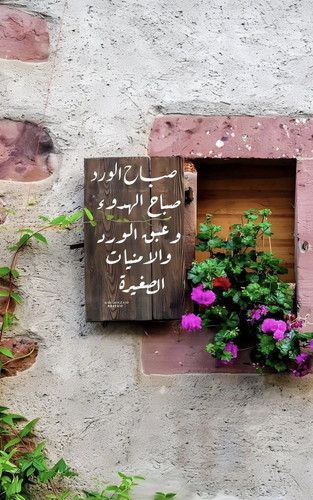 صباح الورد
صباح الهدوء
وعبق الورد
والامنيات
الصغيرة